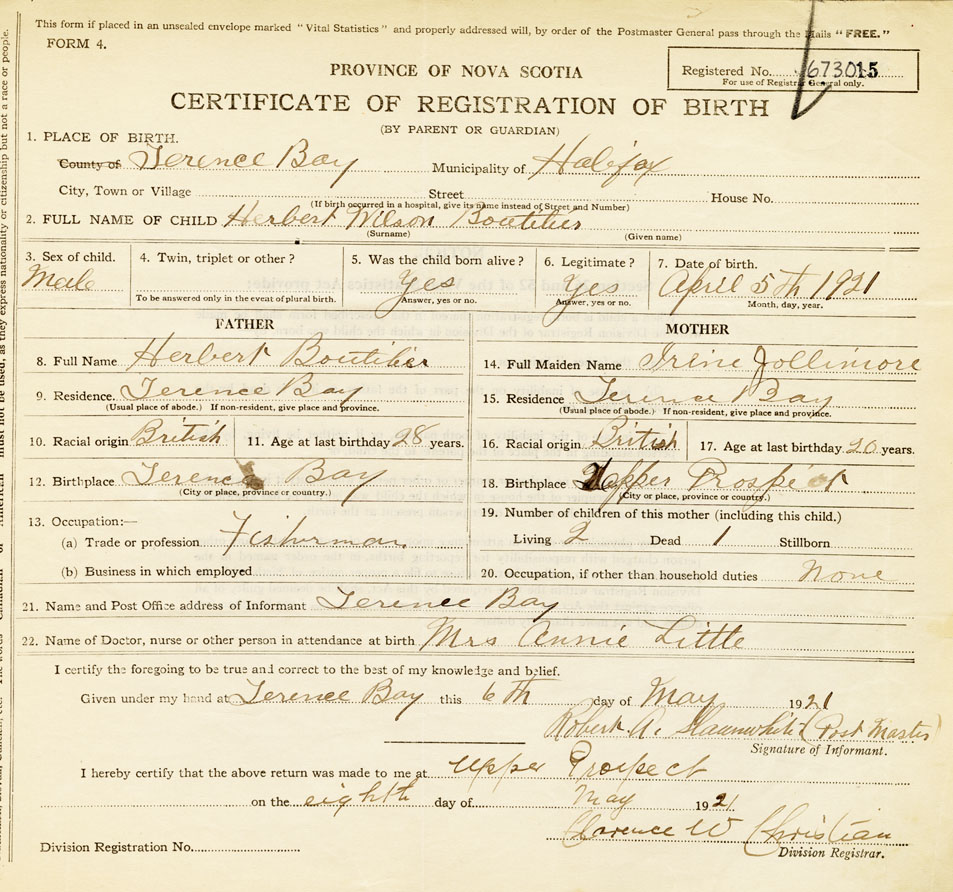 This form if placed in an unsealed envelope marked "Vital Statistics" and properly addressed will, by order of the Postmaster General pass through the Mails "FREE."
FORM 4.
PROVINCE OF NOVA SCOTIA
Registered No. 673015
For use of Registrar General only.
CERTIFICATE OF REGISTRATION OF BIRTH
(BY PARENT OR GUARDIAN)
1. PLACE OF BIRTH.
County of Terence Bay Municipality of Halifax
City, Town or Village Street House No.
(If birth occurred in a hospital, give its name instead of Street and Number)
2. FULL NAME OF CHILD Herbert Wilson Boutilier
(Surname) (Given name)
3. Sex of child. 4. Twin, triplet or other? 5. Was the child born alive? 6. Legitimate? 7. Date of birth.
Male Yes Yes April 5th 1921
To be answered only in the event of plural birth. Answer, yes or no. Answer, yes or no. Month, day, year.
FATHER
8. Full Name Herbert Boutilier
9. Residence. Terence Bay
(Usual place of abode.) If non-resident, give place and province.
10. Racial origin British 11. Age at last birthday 28 years.
12. Birthplace Terence Bay
(City or place, province or country.)
13. Occupation:—
(a) Trade or profession Fisherman.
(b) Business in which employed
MOTHER
14. Full Maiden Name Irene Jollimore
15. Residence Terence Bay
(Usual place of abode.) If non-resident, give place and province.
16. Racial origin British 17. Age at last birthday 20 years.
18. Birthplace Upper Prospect
(City or place, province or country.)
19. Number of children of this mother (including this child.)
Living 2 Dead 1 Stillborn
20. Occupation, if other than household duties None
21. Name and Post Office address of Informant Terence Bay
22. Name of Doctor, nurse or other person in attendance at birth Mrs Annie Little
I certify the foregoing to be true and correct to the best of my knowledge and belief.
Given under my hand at Terence Bay this 6th day of May 1921
Robert A. Slaunwhite (Post Master)
Signature of Informant.
I hereby certify that the above return was made to me at Upper Prospect
on the eighth day of May 1921
Clarence W Christian
Division Registration No. Division Registrar.